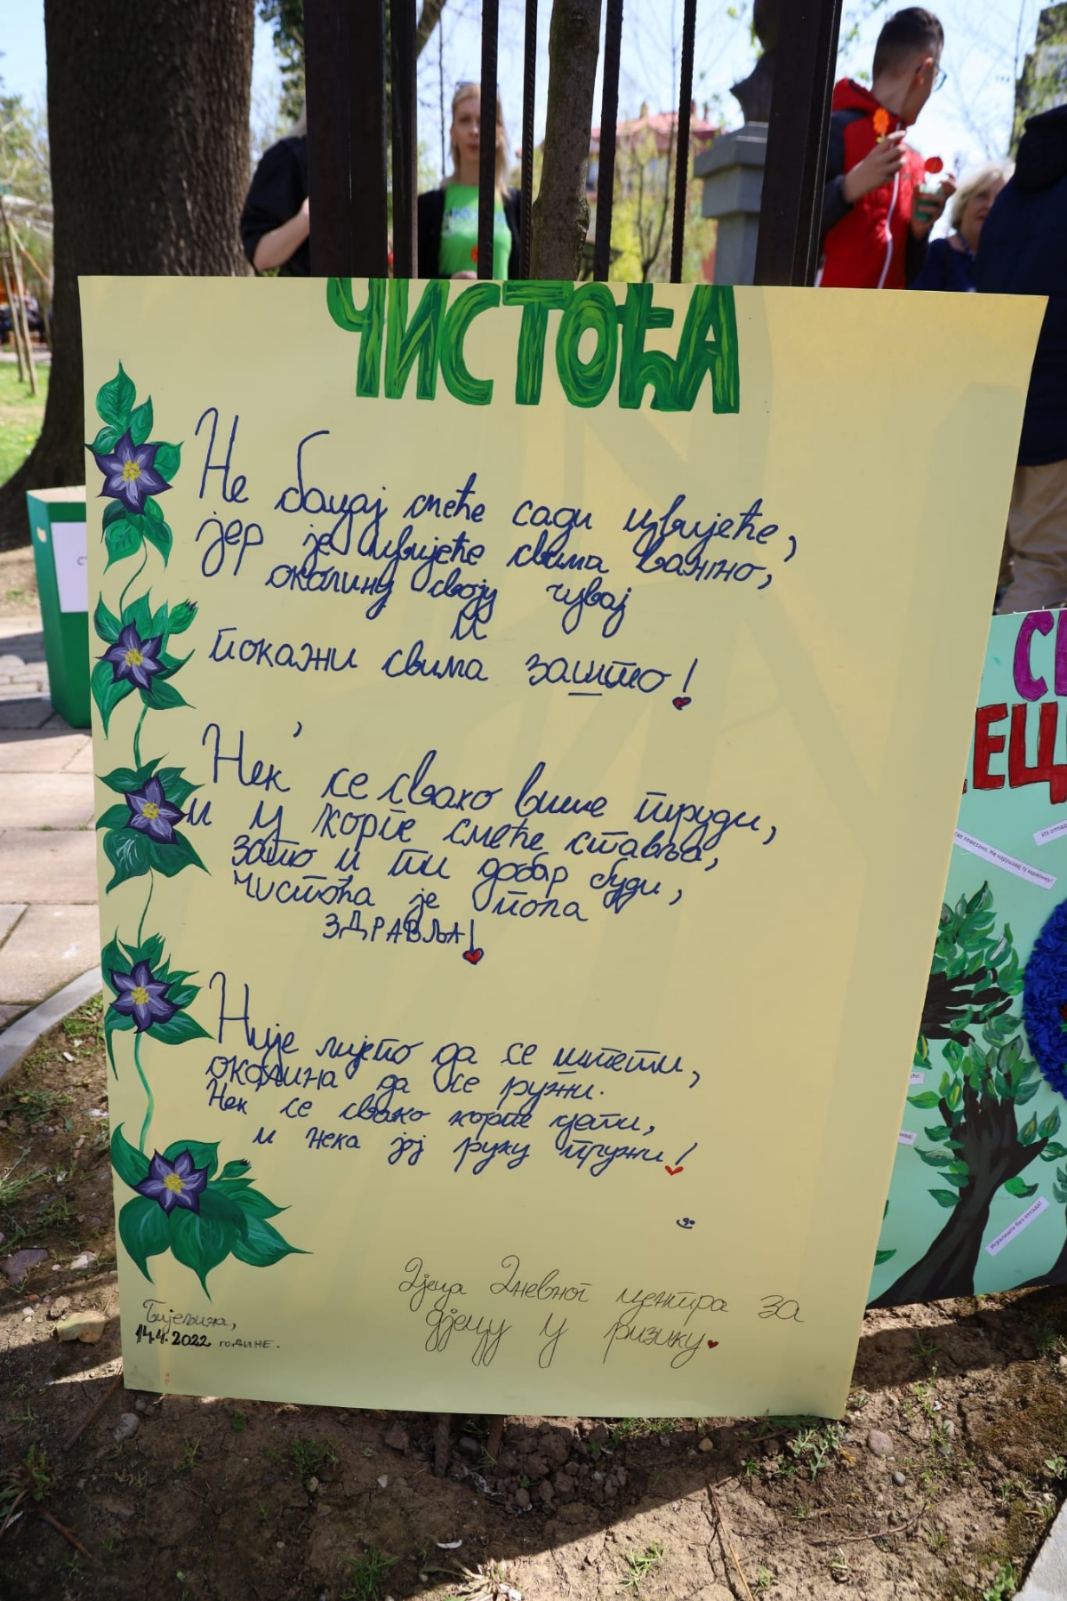 ЧИСТОЋА
Не бацај смеће сади цвијеће,
јер је цвијеће свима важно,
околину своју чувај
и
покажи свима зашто!
Нек' се свако више труди,
и у корпе смеће ставља,
зато и ти добар буди,
чистоћа је пола
ЗДРАВЉА!
Није лијепо да се штети,
околина да се ружи.
Нек се свако корпе сјети,
и нека јој руку пружи!
Дјеца Дневног центра за
дјецу у ризику.
Бијељина,
14.4.2022 године.